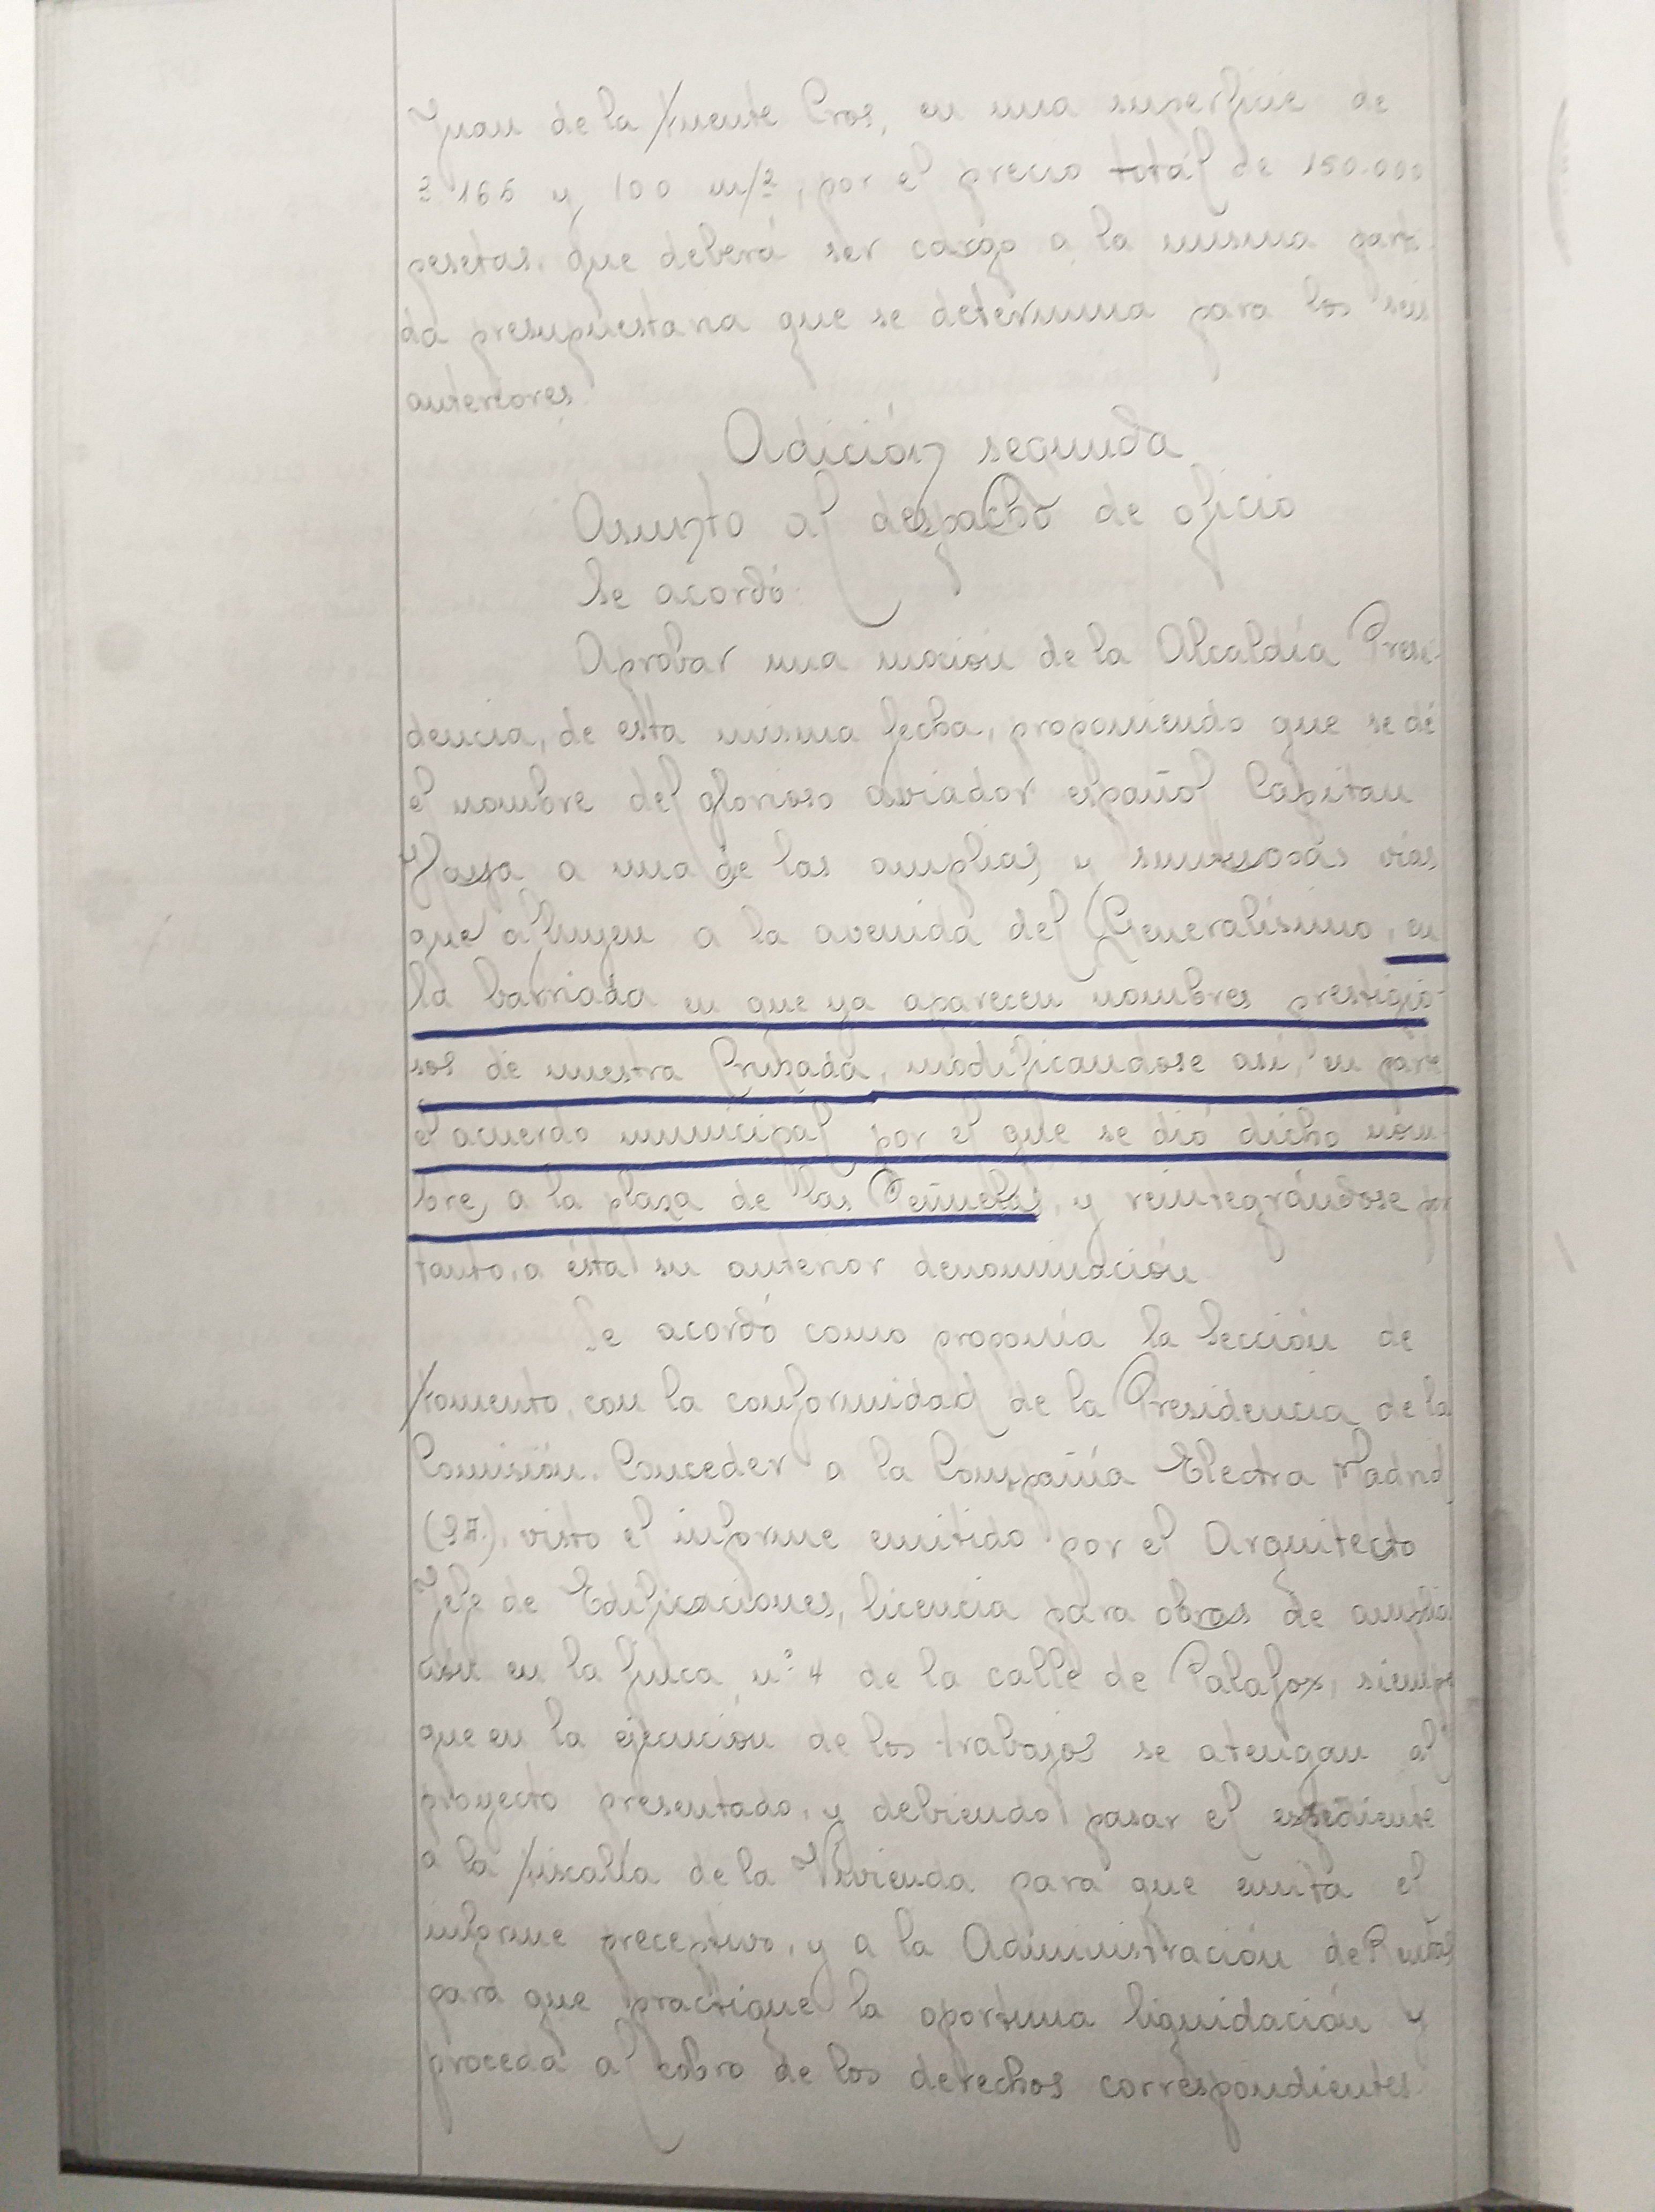 Juan de la Fuente Cros, en una superficie de
3.166 y 100 m/2, por el precio total de 150.000
pesetas, que deberá ser cargo a la misma parti-
da presupuestaria que se determina para los seis
anteriores.
Adición segunda
Asunto al despacho de oficio
Se acordó:
Aprobar una moción de la Alcaldía Presi-
dencia, de esta misma fecha, proponiendo que se dé
el nombre del glorioso aviador español Capitan
Haya a una de las amplias y suntuosas vías
que afluyen a la avenida del Generalísimo, en
la barriada en que ya aparecen nombres prestigio-
sos de nuestra Cruzada, modificandose así, en parte
el acuerdo municipal por el que se dió dicho nom-
bre, a la plaza de las Peñuelas, y reintegrándose por
tanto, a ésta su anterior denominación.
Se acordó como proponía la Sección de
Fomento, con la conformidad de la Presidencia de la
Comisión. Conceder a la Compañía Electra Madrid
(S.A.), visto el informe emitido por el Arquitecto
Jefe de Edificaciones, licencia para obras de amplia
ción en la finca nº 4 de la calle de Palafox, siempre
que en la ejecución de los trabajos se atengan al
proyecto presentado, y debiendo pasar el expediente
a la Fiscalía de la Vivienda para que emita el
informe preceptivo, y a la Administración de Rentas
para que practique la oportuna liquidación y
proceda al cobro de los derechos correspondientes.